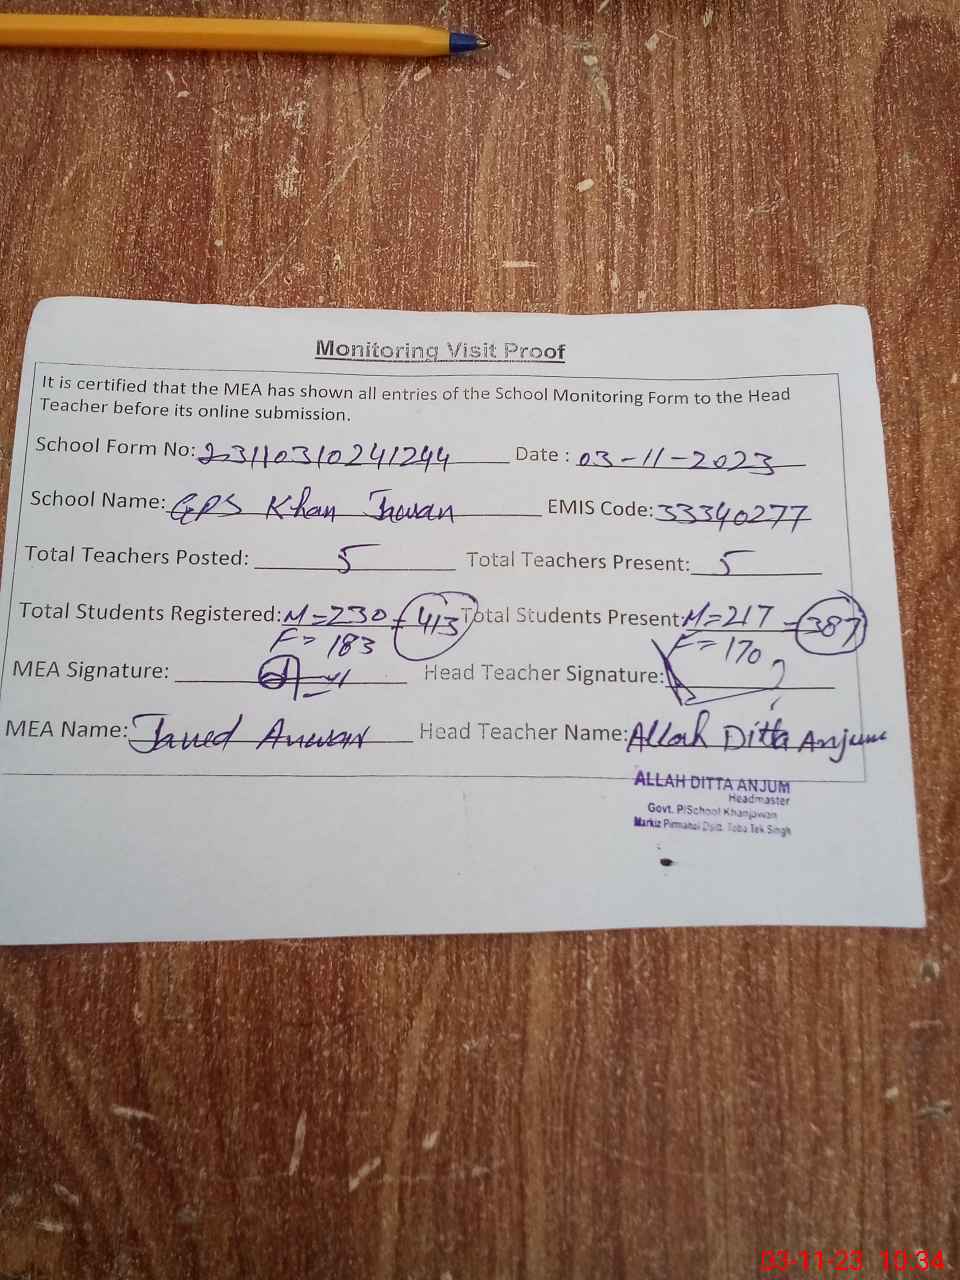 Monitoring Visit Proof
It is certified that the MEA has shown all entries of the School Monitoring Form to the Head
Teacher before its online submission.
School Form No: 23110310241244 Date : 03-11-2023
School Name: GPS Khan Jawan EMIS Code: 33340277
Total Teachers Posted: 5 Total Teachers Present: 5
Total Students Registered: M=230 - 413 Total Students Present: M=217 - 387
F= 183 F= 170
MEA Signature: Head Teacher Signature:
MEA Name: Javed Anwar Head Teacher Name: Allah Ditta Anjum
ALLAH DITTA ANJUM
Headmaster
Govt. P/School Khanjawan
Markiz Pirmahal Distt. Toba Tek Singh
03-11-23 10:34